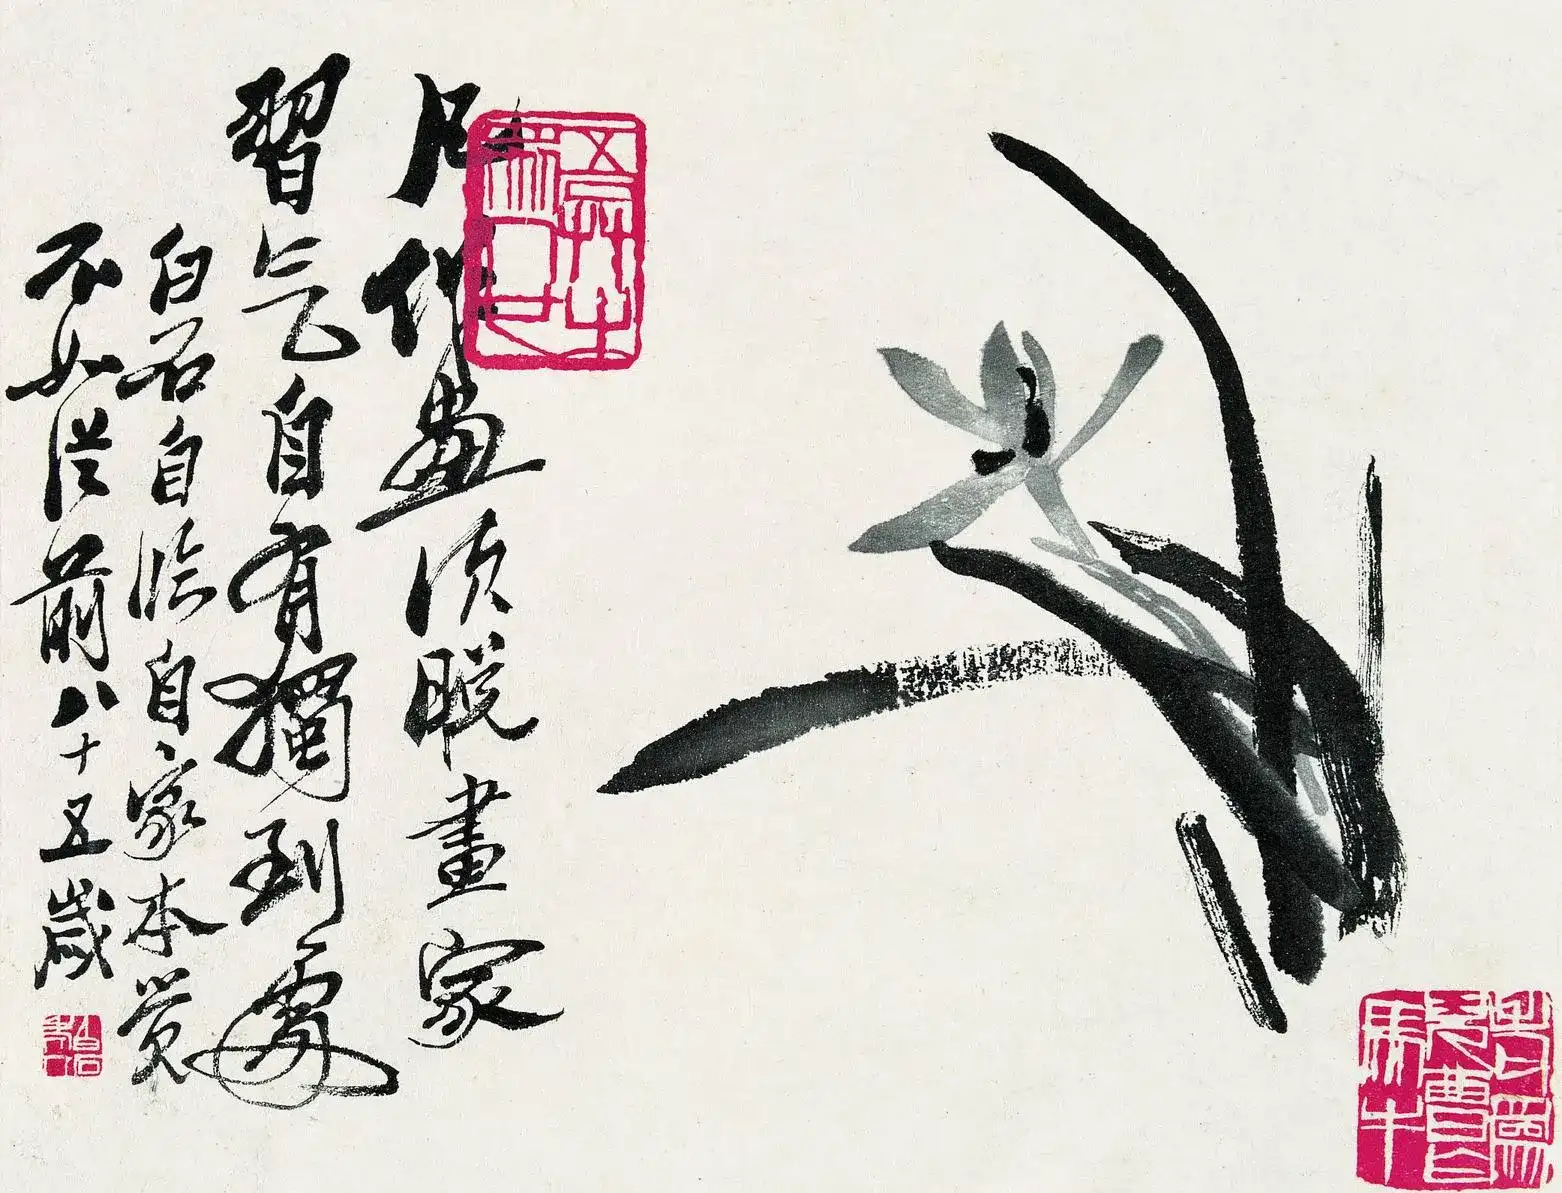 凡作畫須脫畫家
習气自有獨到處
白石自臨自家本覺
不如從前八十五歲